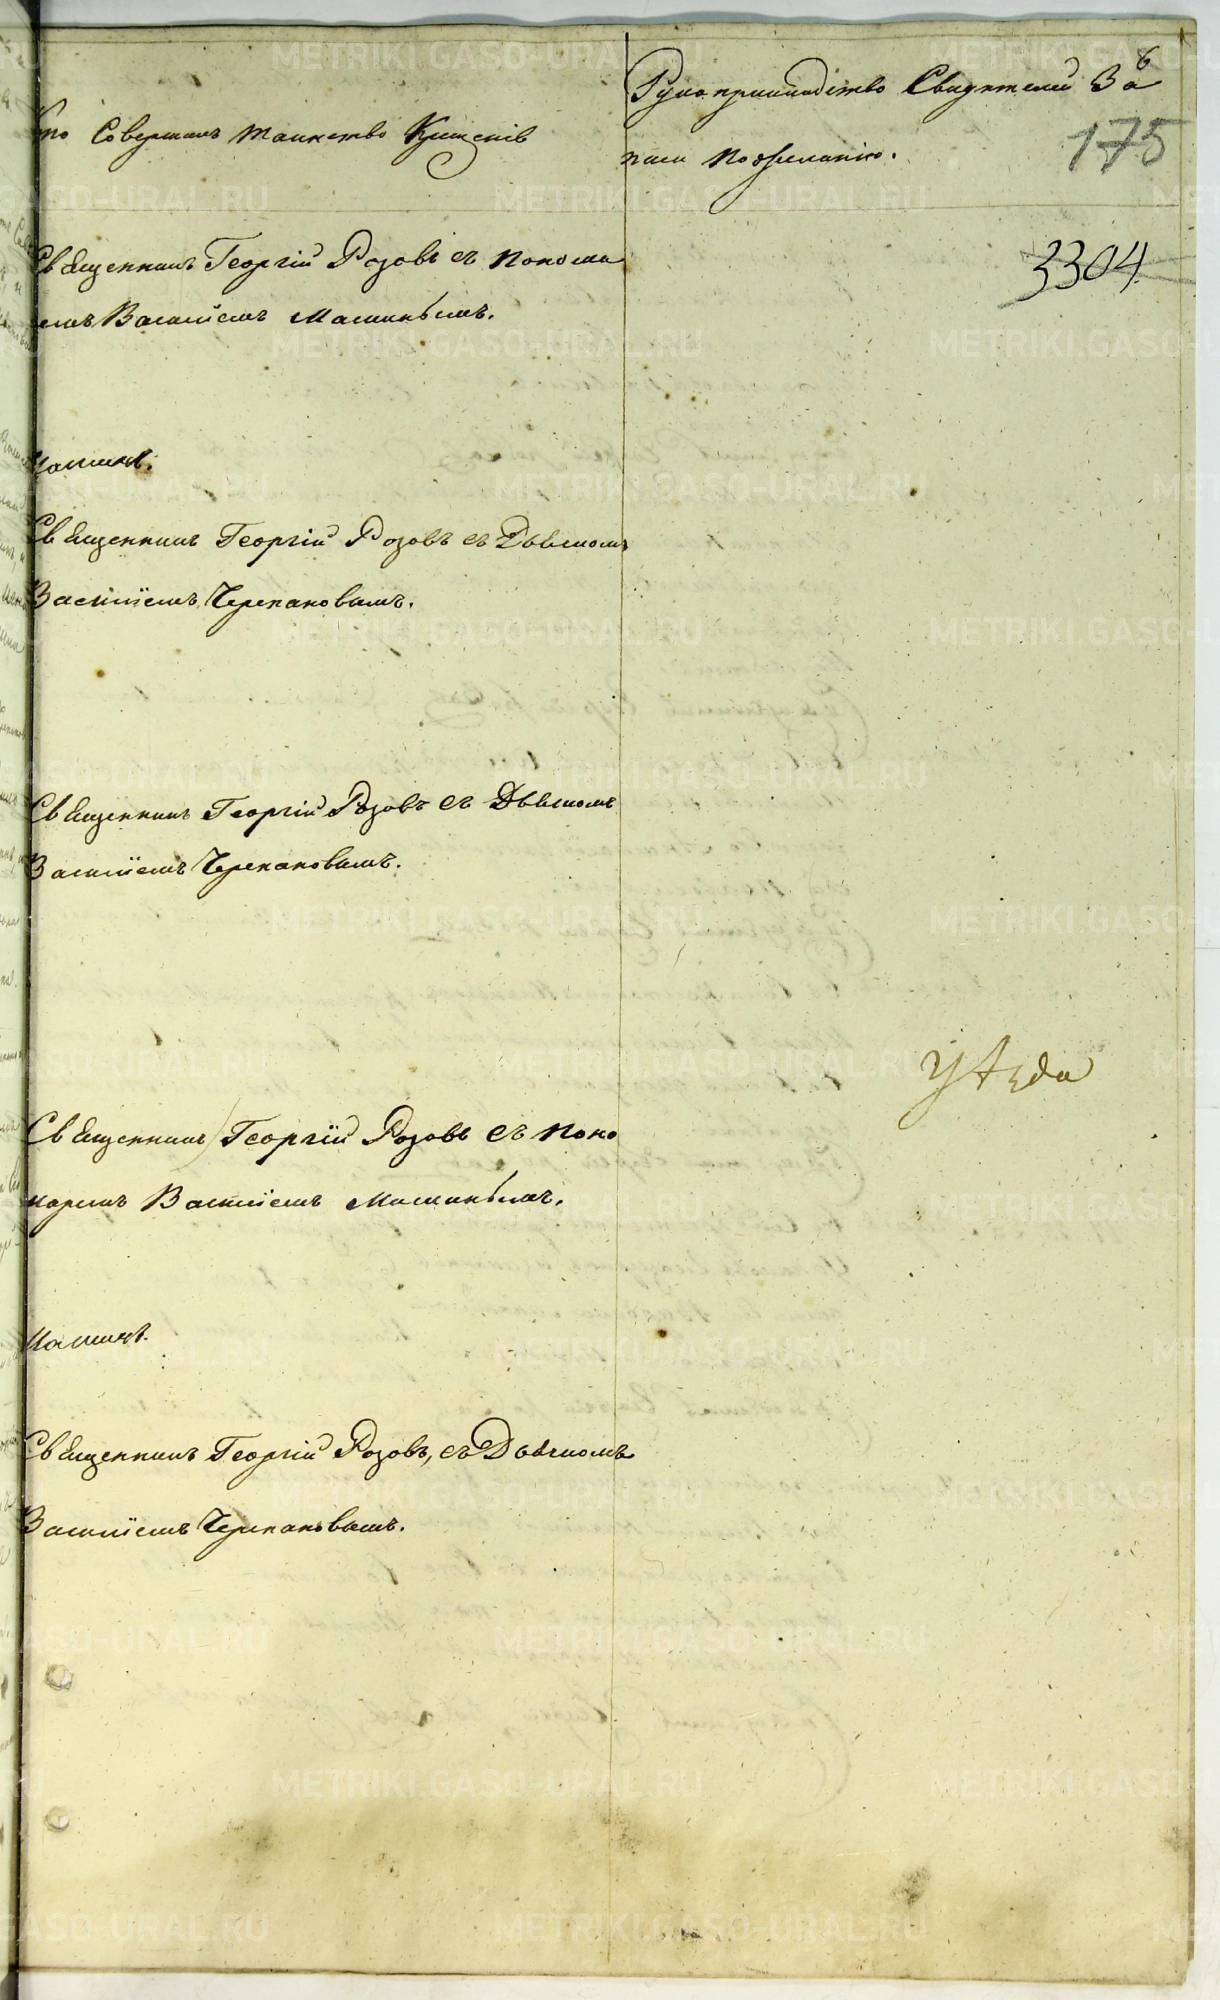 Кто Совершалъ таинство Крещенія
Рукоприкладство Свидѣтелей За
писи по желанію.
6
175
3304
Священникъ Георгій Розовъ съ понома
емъ Василіемъ
Священникъ Георгій Розовъ съ Дьячкомъ
Василіемъ Черепановымъ.
Священникъ Георгій Розовъ съ Дьячкомъ
Василіемъ Черепановымъ.
уѣзда
Священникъ Георгій Розовъ съ поно
маремъ Василіемъ
Священникъ Георгій Розовъ, съ Дьячкомъ
Василіемъ Черепановымъ.
METRIKI.GASO-URAL.RU